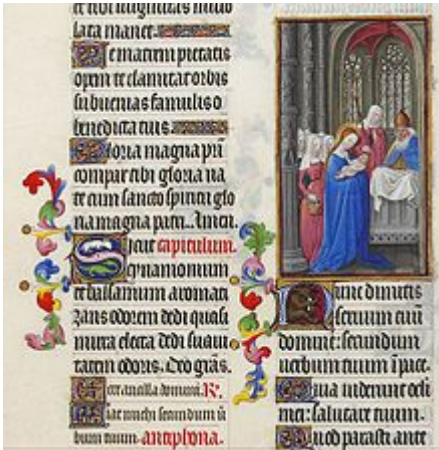 lata manet.
Te matrem pietatis
opem te clamitat orbis
subuenias famulis o
benedicta tuis.
Gloria magna pri
compar tibi gloria na
te cum sancto spiritu glo
ria magna patri. Amen.
Sicut capitulum.
cynamomum
et balsamum aromati
zans odorem dedi quasi
mirra electa dedi suaui
tatem odoris. Deo gras.
Ecce ancilla domini. R.
Fiat michi secundum u
bum tuum. antiphona.
Nunc dimittis
seruum tuum
domine: secundum
uerbum tuum i pace.
Quia uiderunt oculi
mei: salutare tuum.
Quod parasti ante